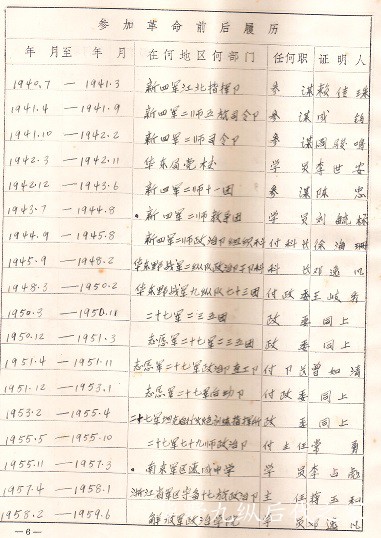 参加革命前后履历
年月至 年月 在何地区何部门 任何职 证明人
1940.7 — 1941.3 新四军江北指挥部 参谋 赖传珠
1941.4 — 1941.9 新四军二师 司令部 参谋
1941.10 — 1942.2 新四军二师司令部 参谋 周骏鸣
1942.3 — 1942.11 华东局党校 学员 李世安
1942.12 — 1943.6 新四军二师十一团 参谋 陈忠
1943.7 — 1944.8 新四军二师 学员 刘毓标
1944.9 — 1945.8 新四军二师政治部组织科 付科长 徐海珊
1945.9 — 1948.2 华东野战军二纵队政治部 科 科长 邓逸凡
1948.3 — 1950.2 华东野战军九纵队七十三团 付政委 王
1950.3 — 1950.11 二十七军二三五团 政委 同上
1950.12 — 1951.3 志愿军二十七军二三五团 政委 同上
1951.4 — 1951.11 志愿军二十七军政治部 工部 付部长 曾如清
1951.12 — 1953.1 志愿军二十七军 付政委 同上
1953.2 — 1955.4 二十七军 指挥所 政委 同上
1955.5 — 1955.10 二十七军七十九师政治部 付主任 常勇
1955.11 — 1957.3 南京军区 中学 学员 李占彪
1957.4 — 1958.1 浙江省军区 政治部 主任
1958.2 — 1959.6 解放军政治学院 员 邓逸凡
—6—